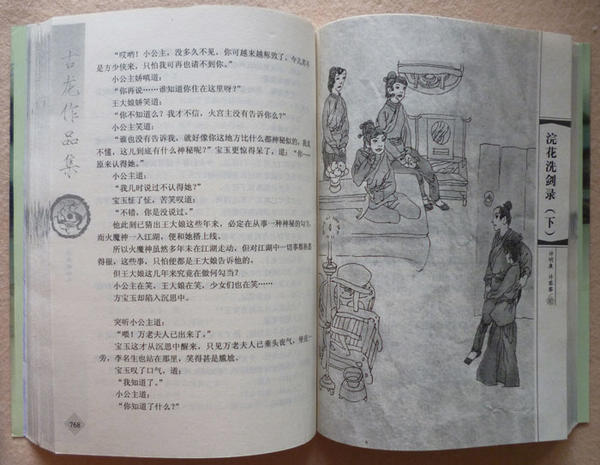 古龙作品集
“哎哟！小公主，没多久不见，你可越来越标致了，今儿若不
是方少侠来，只怕我可再也请不到你。”
小公主娇嗔道：
“你再说……谁知道你住在这里呀？”
王大娘娇笑道：
“你不知道么？我才不信，火宫主没有告诉你么？”
小公主笑道：
“谁也没有告诉我，就好像你这地方比什么都神秘似的，我真
不懂，这儿到底有什么神秘呢？”宝玉更惊得呆了，道：“你……
原来认得她。”
小公主道：
“我几时说过不认得她？”
宝玉怔了怔，苦笑叹道：
“不错，你是没说过。”
他此刻已猜出王大娘这些年来，必定在从事一种神秘的勾当，
而火魔神一入江湖，便和她搭上线。
所以火魔神虽然多年未在江湖走动，但对江湖中一切事都熟悉
得很，这些事，只怕便都是王大娘告诉他的。
但王大娘这几年来究竟在做何勾当？
小公主在笑，王大娘在笑，少女们也在笑……
方宝玉却陷入沉思中。
突听小公主道：
“喂！万老夫人已出来了。”
宝玉这才从沉思中醒来，只见万老夫人已垂头丧气，
旁，李名生也站在那里，笑得甚是尴尬。
宝玉叹了口气，道：
“我知道了。”
小公主道：
“你知道了什么？”
768
浣花洗剑录（下）